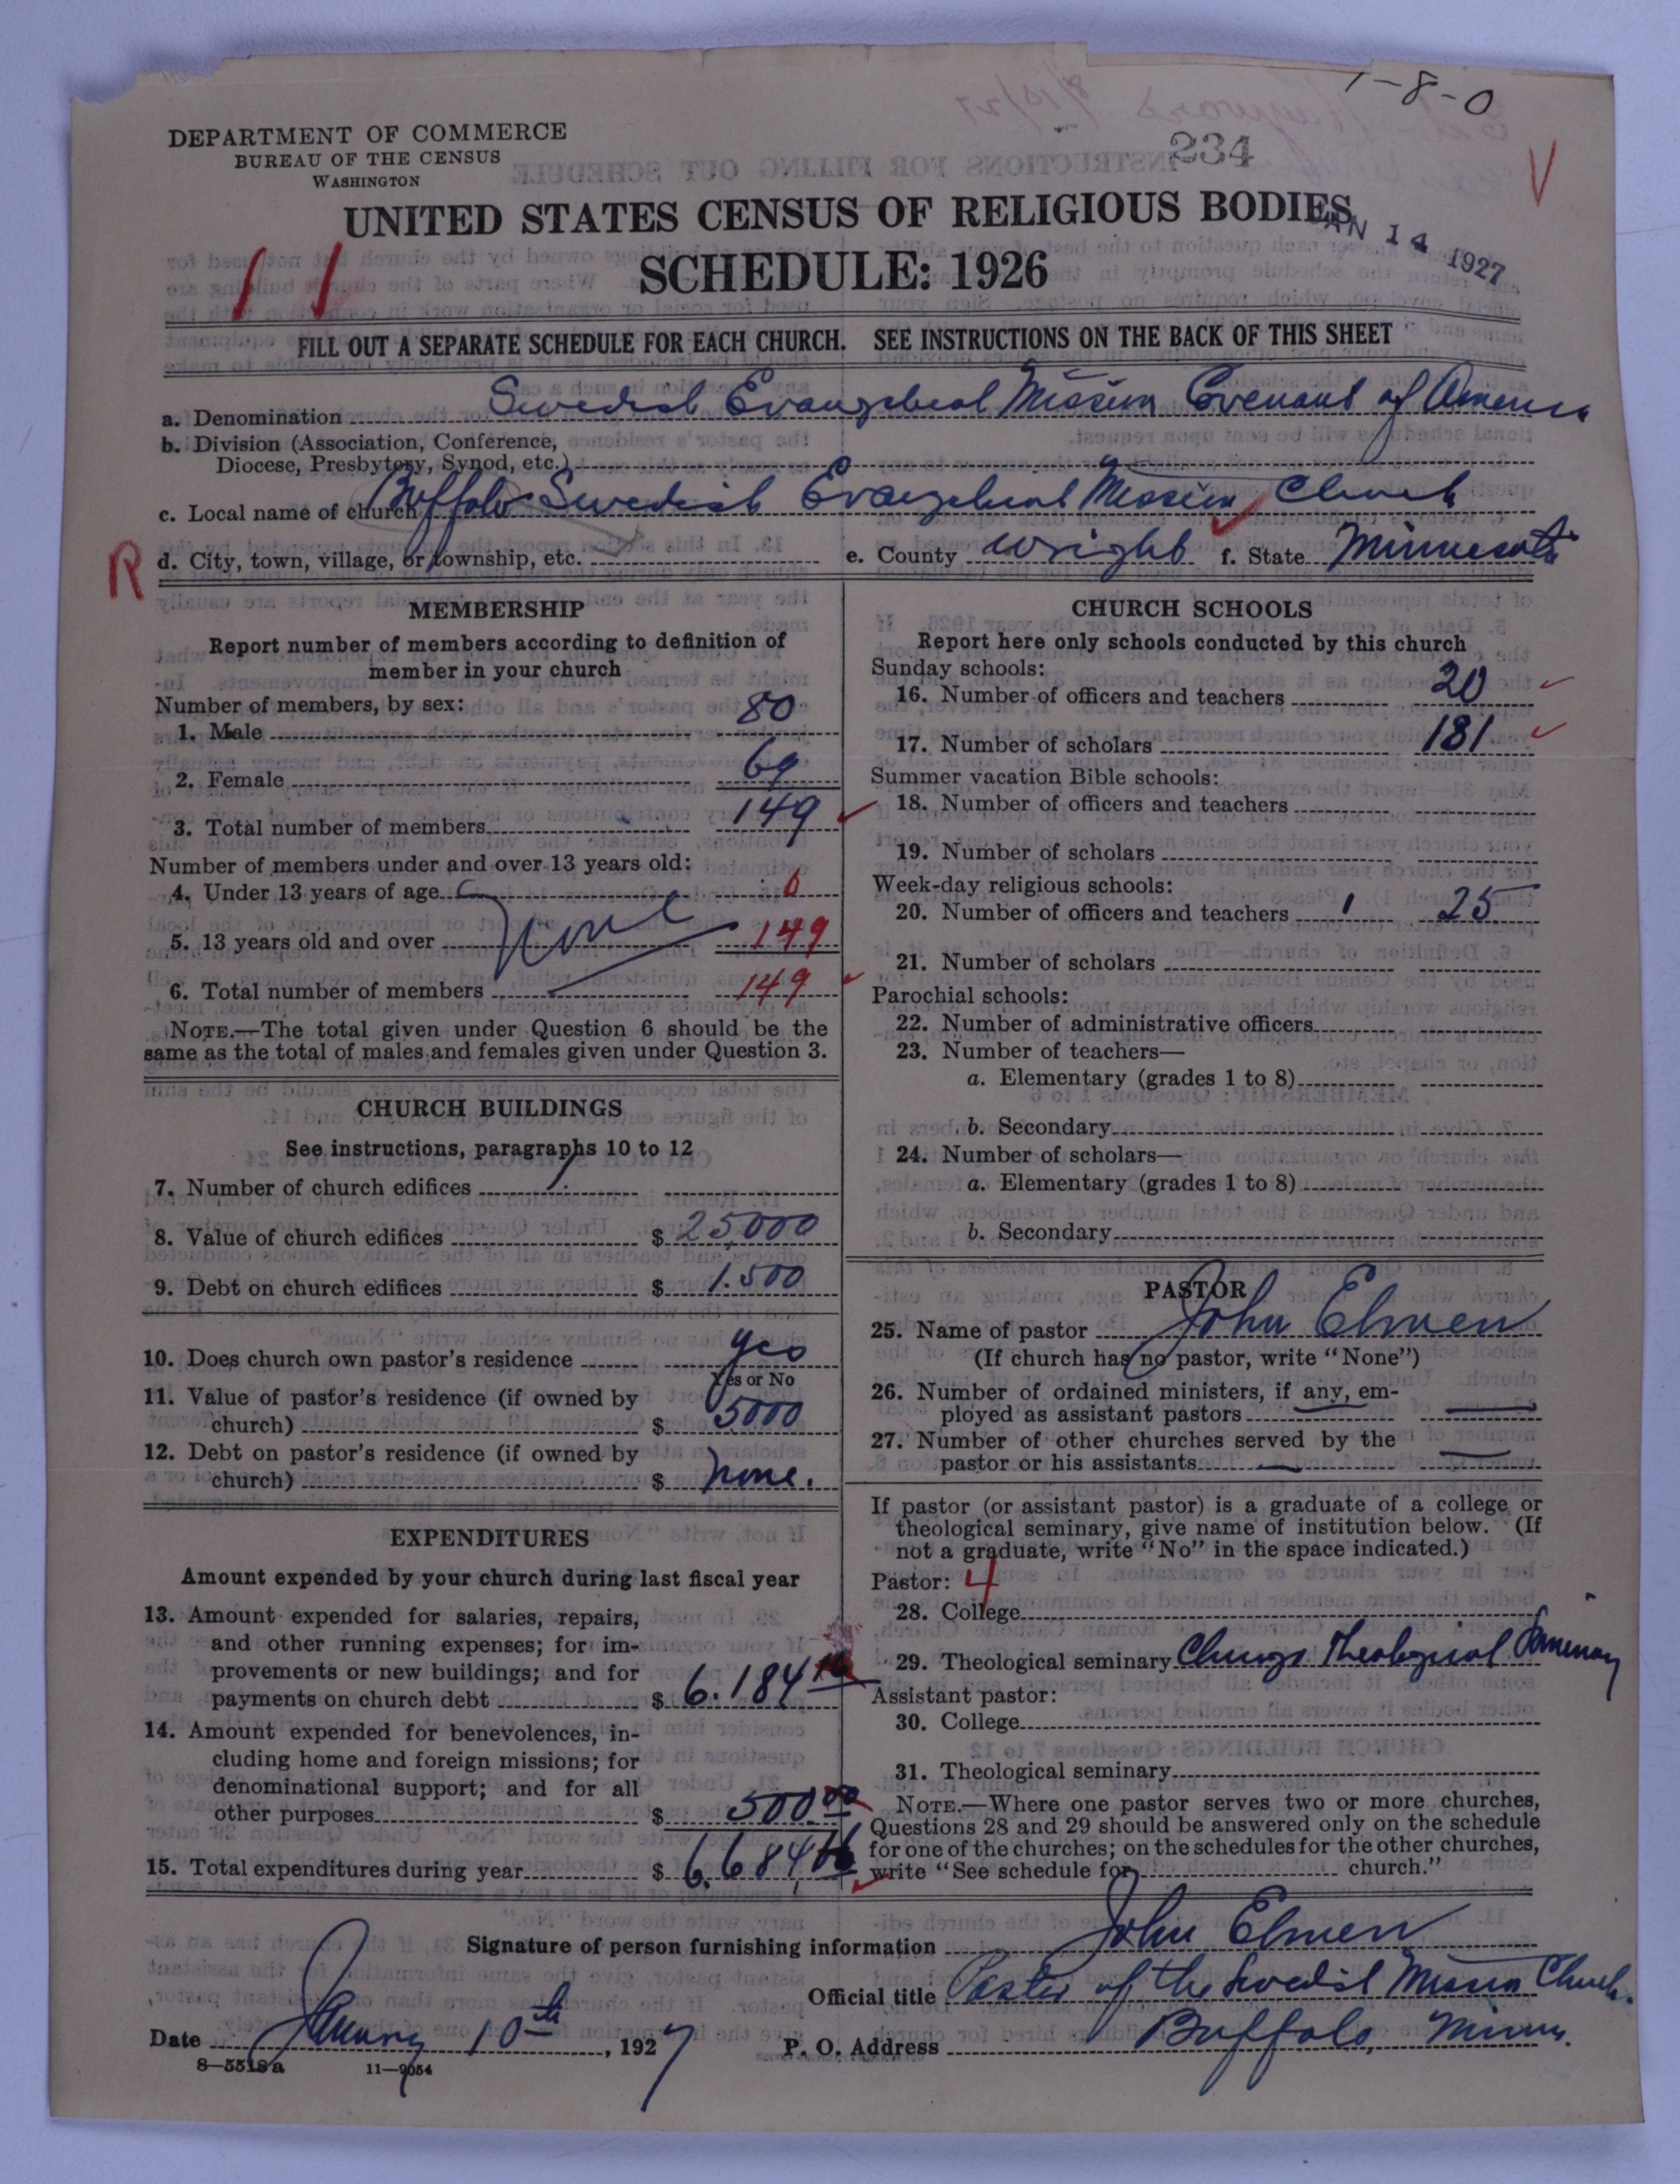 1-8-0
DEPARTMENT OF COMMERCE
BUREAU OF THE CENSUS
WASHINGTON
234
UNITED STATES CENSUS OF RELIGIOUS BODIES
JAN 14 1927
SCHEDULE: 1926
FILL OUT A SEPARATE SCHEDULE FOR EACH CHURCH. SEE INSTRUCTIONS ON THE BACK OF THIS SHEET
a. Denomination Swedish Evangelical Mission Covenant of America
b. Division (Association, Conference,
Diocese, Presbytery, Synod, etc.)
c. Local name of church Buffalo Swedish Evangelical Mission Church
R d. City, town, village, or township, etc. e. County Wright f. State Minnesota
MEMBERSHIP
Report number of members according to definition of
member in your church
Number of members, by sex:
1. Male 80
2. Female 69
3. Total number of members 149
Number of members under and over 13 years old:
4. Under 13 years of age 0
None
5. 13 years old and over 149
6. Total number of members 149
NOTE.—The total given under Question 6 should be the
same as the total of males and females given under Question 3.
CHURCH BUILDINGS
See instructions, paragraphs 10 to 12
7. Number of church edifices 1
8. Value of church edifices $ 25,000
9. Debt on church edifices $ 1.500
10. Does church own pastor's residence yes
Yes or No
11. Value of pastor's residence (if owned by
church) $ 5000
12. Debt on pastor's residence (if owned by
church) $ none.
EXPENDITURES
Amount expended by your church during last fiscal year
13. Amount expended for salaries, repairs,
and other running expenses; for im-
provements or new buildings; and for
payments on church debt $ 6.184
14. Amount expended for benevolences, in-
cluding home and foreign missions; for
denominational support; and for all
other purposes $ 500.00
15. Total expenditures during year $ 6,684
CHURCH SCHOOLS
Report here only schools conducted by this church
Sunday schools:
16. Number of officers and teachers 20
17. Number of scholars 181
Summer vacation Bible schools:
18. Number of officers and teachers
19. Number of scholars
Week-day religious schools:
20. Number of officers and teachers 1 25
21. Number of scholars
Parochial schools:
22. Number of administrative officers
23. Number of teachers—
a. Elementary (grades 1 to 8)
b. Secondary
24. Number of scholars—
a. Elementary (grades 1 to 8)
b. Secondary
PASTOR
25. Name of pastor John Elmen
(If church has no pastor, write "None")
26. Number of ordained ministers, if any, em-
ployed as assistant pastors
27. Number of other churches served by the
pastor or his assistants
If pastor (or assistant pastor) is a graduate of a college or
theological seminary, give name of institution below. (If
not a graduate, write "No" in the space indicated.)
Pastor: 4
28. College
29. Theological seminary Chicago Theological Seminary
Assistant pastor:
30. College
31. Theological seminary
NOTE.—Where one pastor serves two or more churches,
Questions 28 and 29 should be answered only on the schedule
for one of the churches; on the schedules for the other churches,
write "See schedule for church."
Signature of person furnishing information John Elmen
Official title Pastor of the Swedish Mission Church.
Date January 10th, 1927 P. O. Address Buffalo, Minn.
8—5518a 11—9054